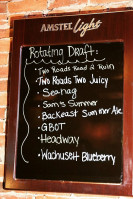 AMSTEL Light
Rotating Draft:
• Two Roads Road 2 Ruin
• Two Roads Two Juicy
• Sea-nag
• Sam's Summer
• Backeast Summer Ale
• GBOT
• Headway
• Wachusett Blueberry